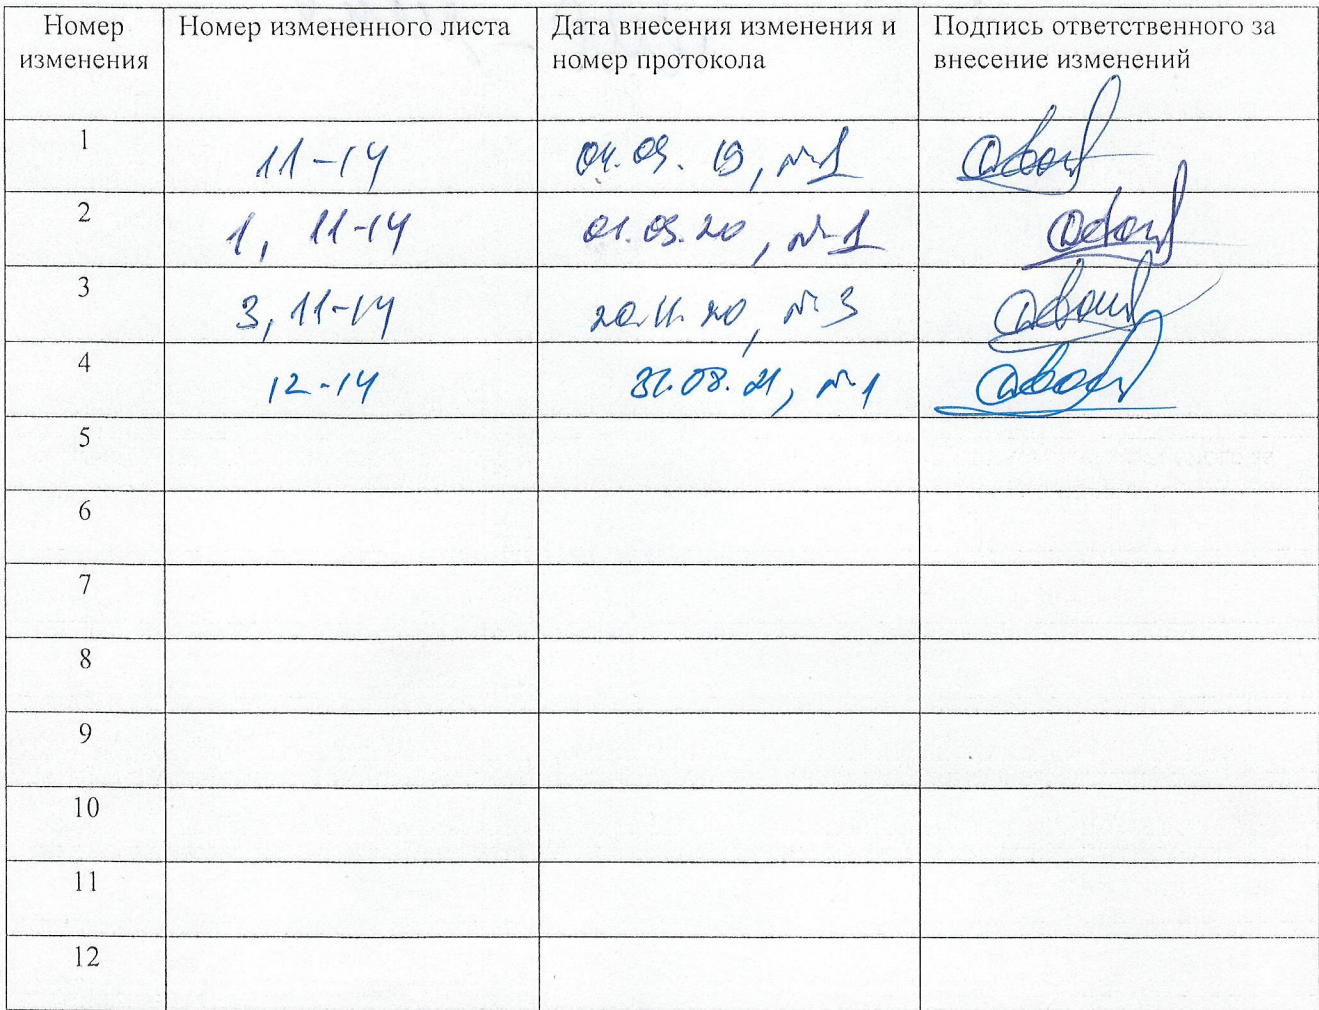 Номер изменения
Номер измененного листа
Дата внесения изменения и номер протокола
Подпись ответственного за внесение изменений
1
11-14
09. 19, №1
2
1, 11-14
01.09.20, №1
3
3, 11-14
20.11.20, №3
4
12-14
31.08.21, №1
5
6
7
8
9
10
11
12